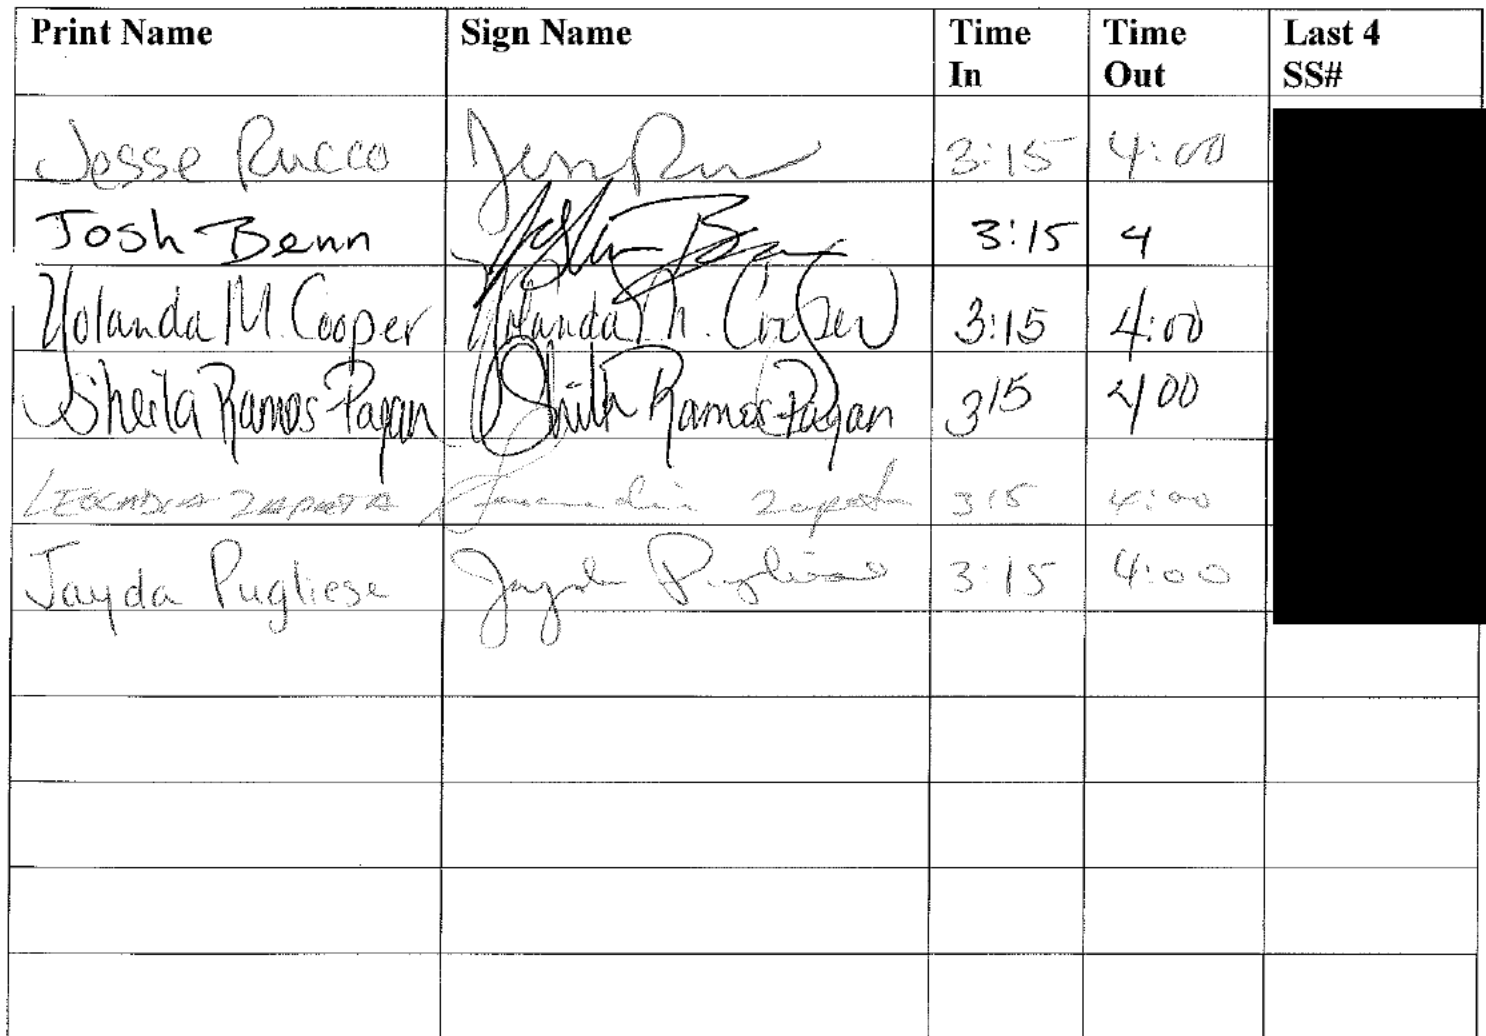 Print Name Sign Name Time In Time Out Last 4 SS#
Jesse Rucco Jesse Rucco 3:15 4:00
Josh Benn Josh Benn 3:15 4
Yolanda M. Cooper Yolanda M. Cooper 3:15 4:00
Sheila Ramos-Pagan Sheila Ramos-Pagan 315 400
LEOCADIA ZAPATA Leocadia Zapata 315 4:00
Jayda Pugliese Jayda Pugliese 3:15 4:00